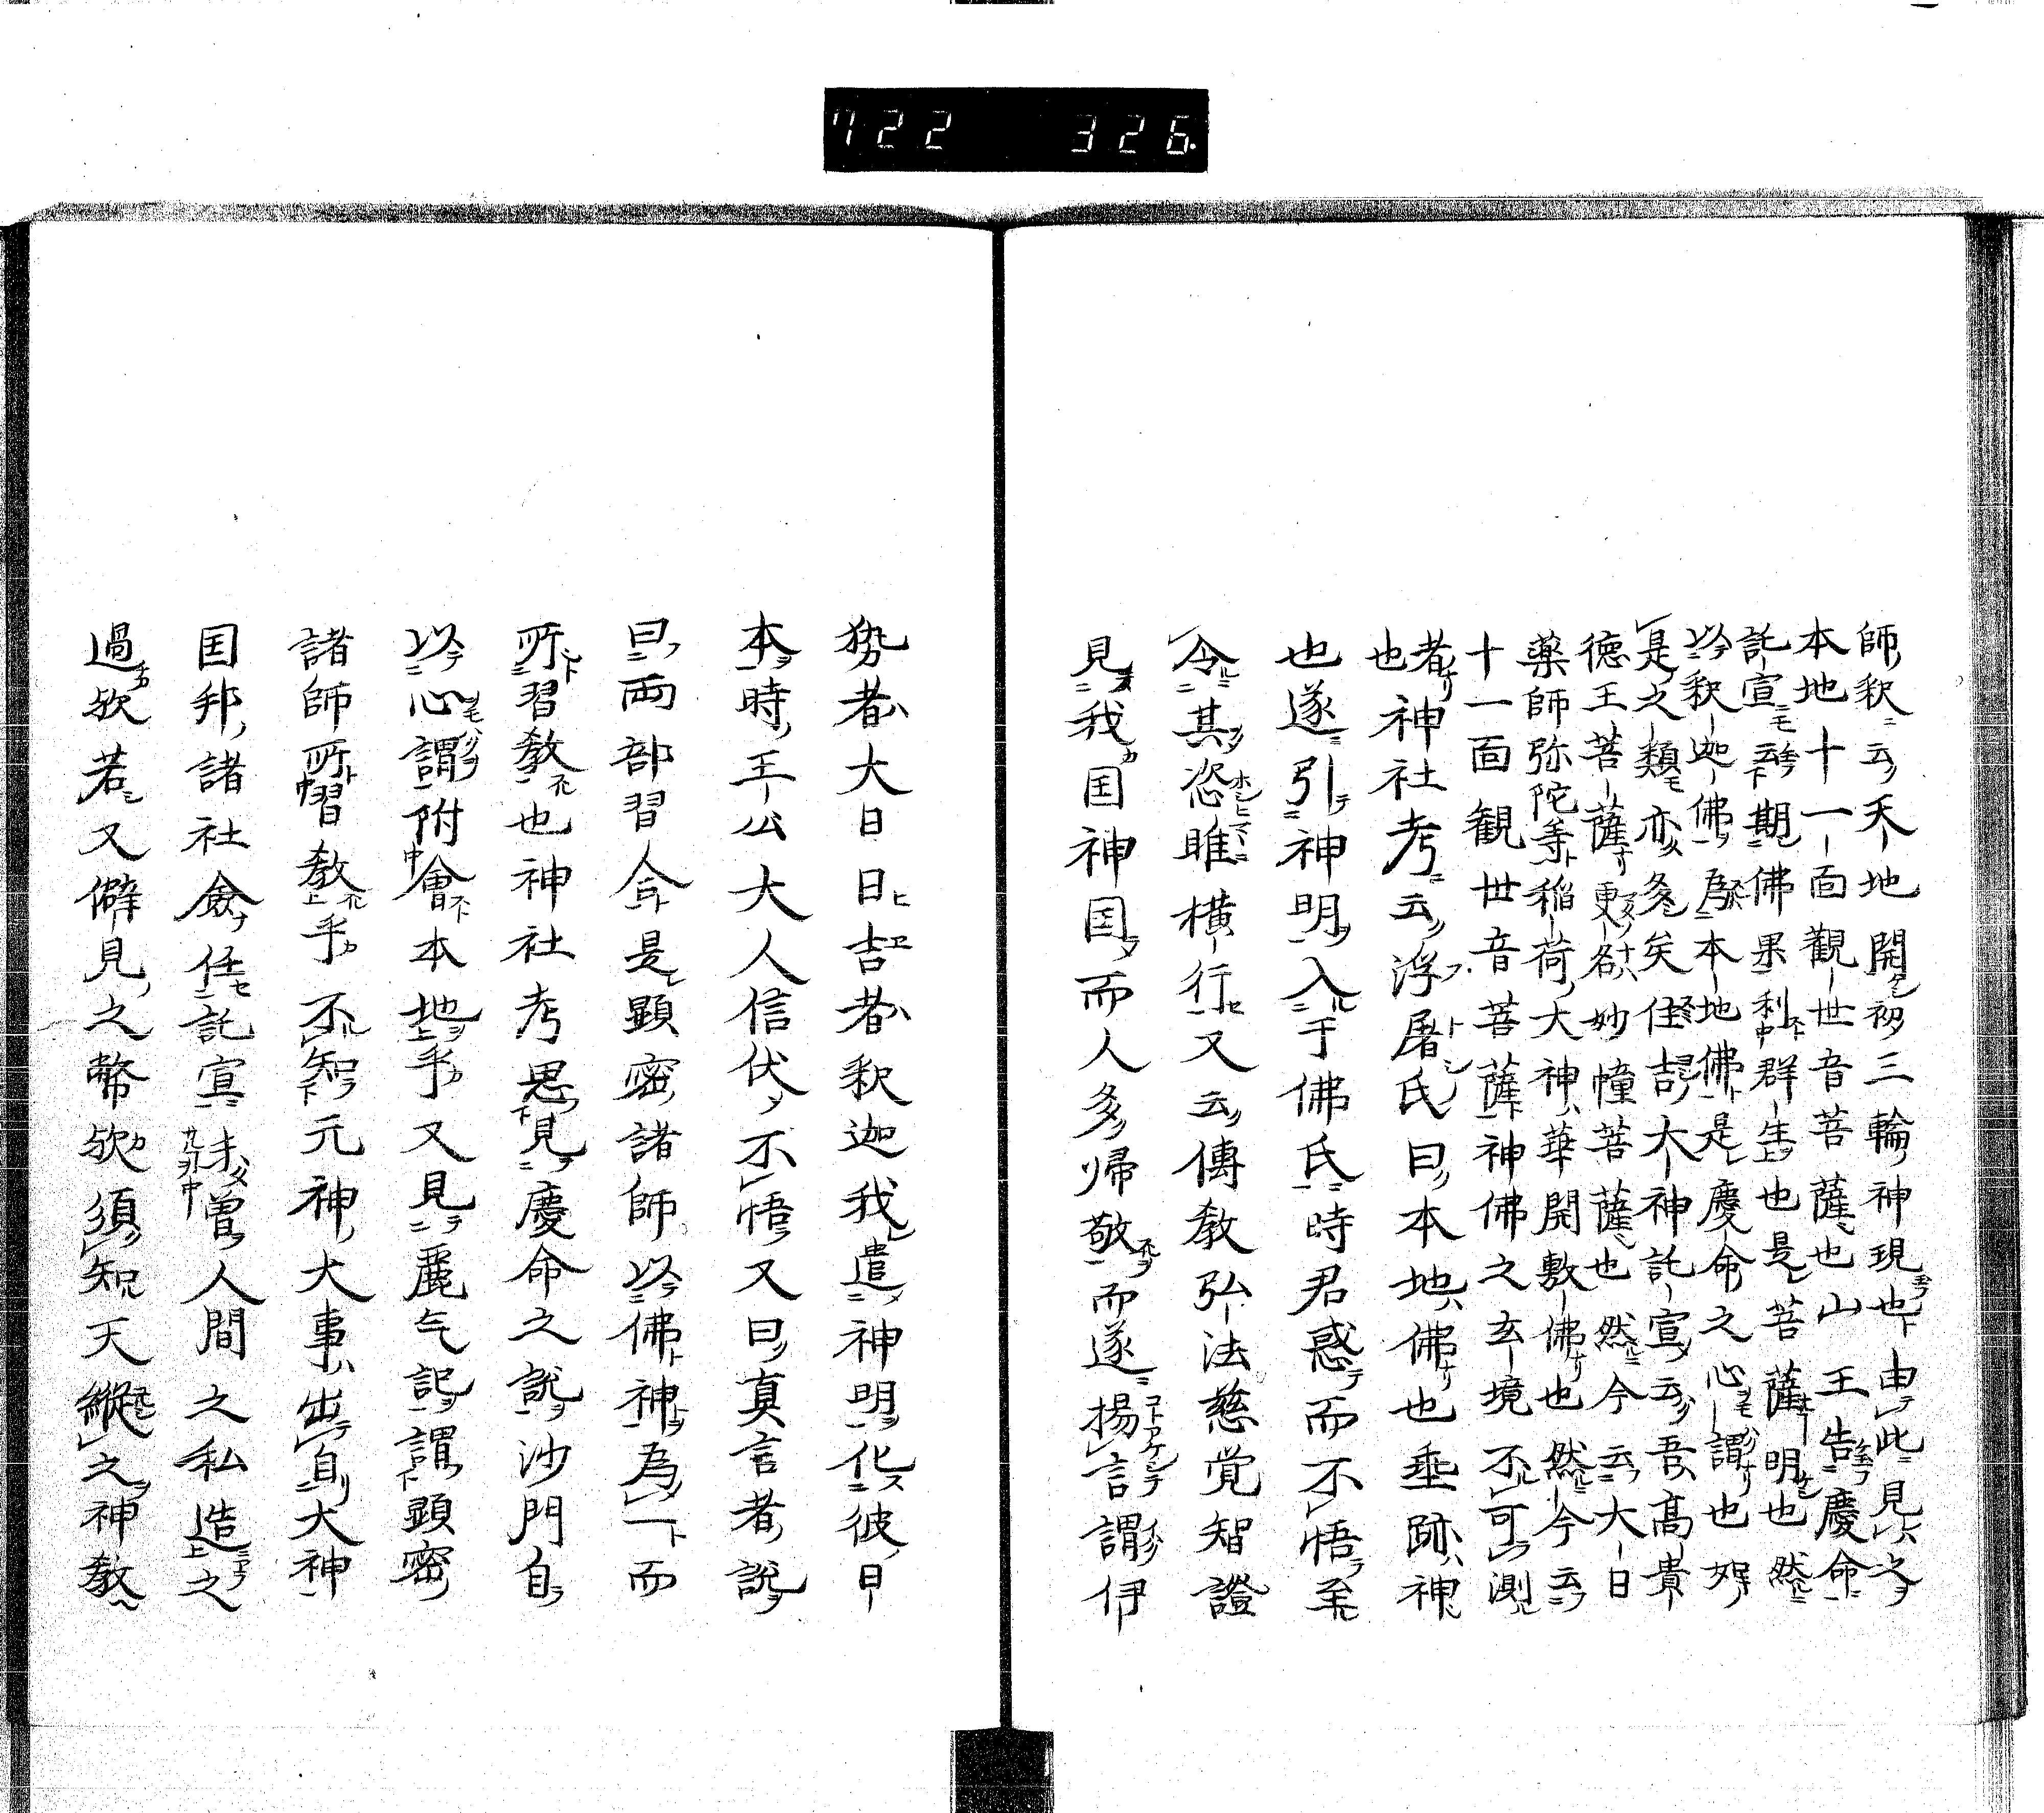 722 326
師釈云天地開初三輪神現也由此見之
本地十一面觀世音菩薩也山王告慶命
託宣云期佛果利群生也是菩薩明也然
以釈迦佛為本地佛是慶命之心謂也如
是之類亦多矣住吉大神託宣云吾高貴
徳王菩薩更名妙幢菩薩也然今云大日
薬師弥陀等稲荷大神華開敷佛也然今云
十一面観世音菩薩神佛之玄境不可測
者也神社考云浮屠氏曰本地佛也垂跡神
也遂引神明入于佛氏時君惑而不悟至
令其恣睢横行又云傳教弘法慈覚智證
見我国神国而人多帰敬而遂揚言謂伊
勢者大日日吉者釈迦我遣神明化彼日
本時王公大人信伏不悟又曰真言者説
曰両部習合是顕密諸師以佛神為一而
所習教也神社考思見慶命之説沙門自
以心謂附會本地乎又見麗气記謂顕密
諸師所習教乎不知元神大事出自大神
国邦諸社僉任託宣未曽人間之私造之
過欤若又僻見之幣欤須知天縱之神教